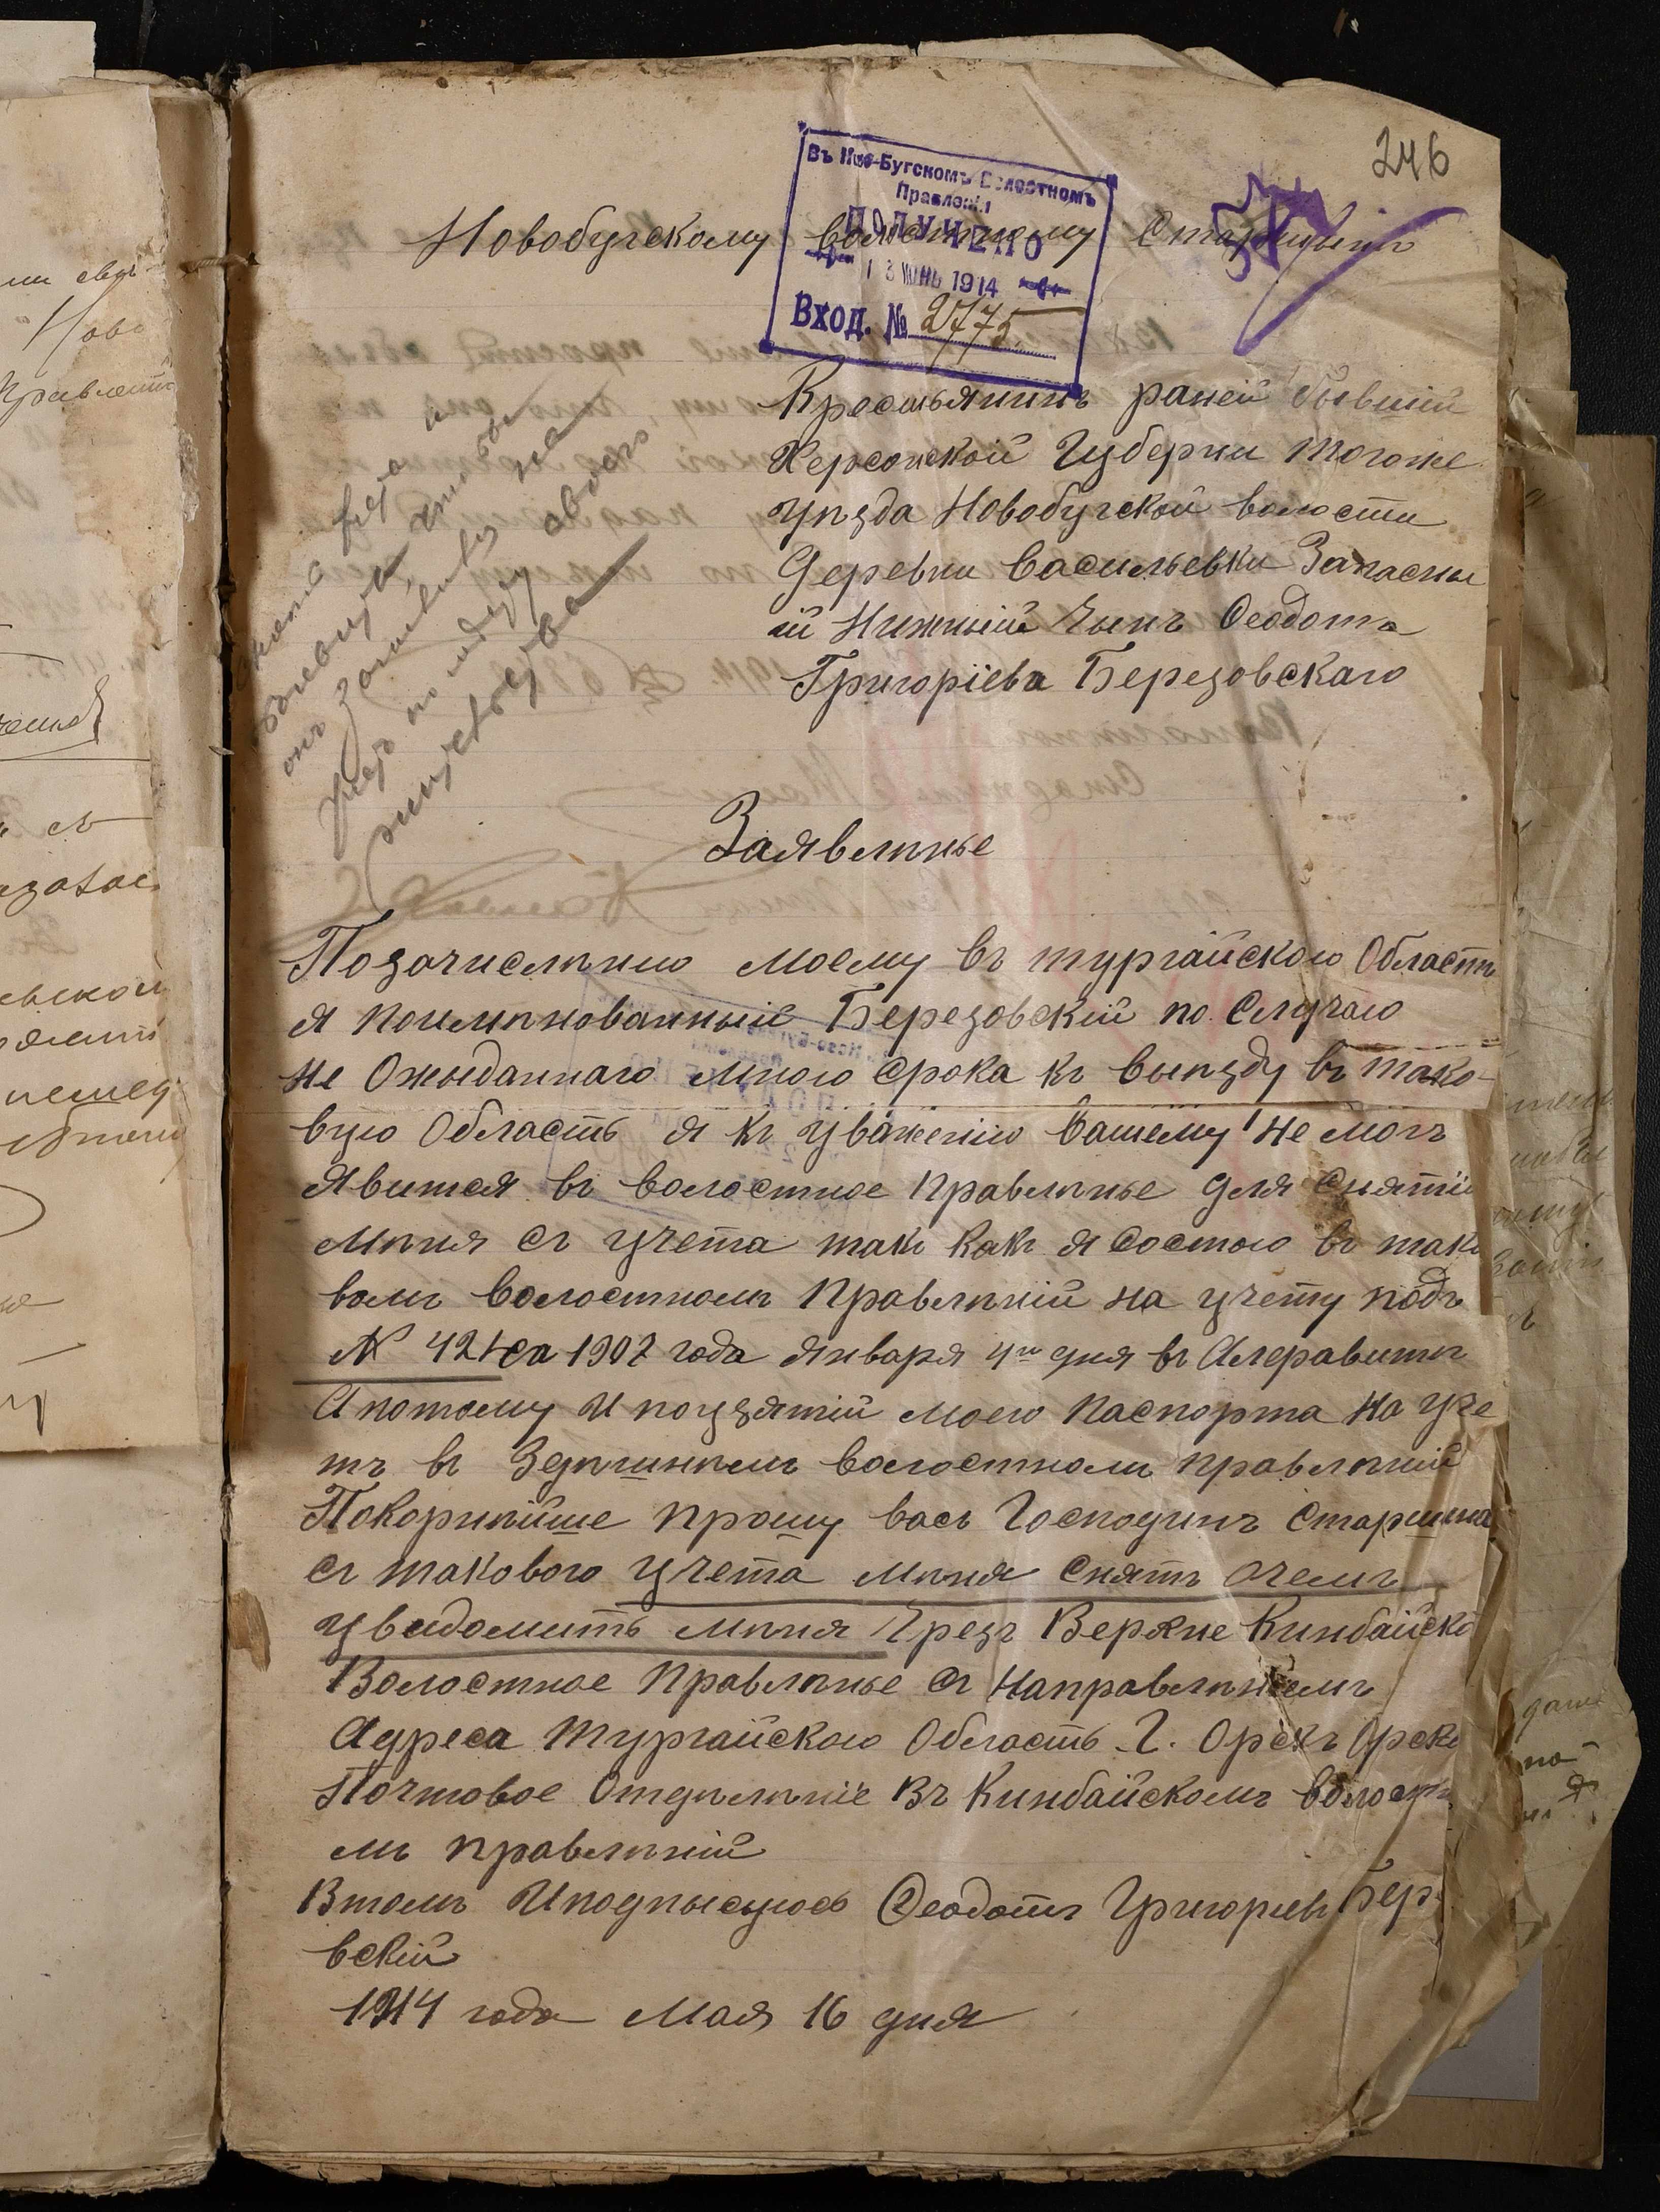 246
Въ Ново-Бугскомъ Волостномъ
Правленіи
ПОЛУЧЕНО
13 ІЮНЬ 1914
Вход. № 2775
Новобугскому волостному Старшинѣ
Крестьянинъ раней бывшій
Херсонской Губерни Тогоже
уѣзда Новобугской волости
Деревни Васильевки Запасны
ій Нижній Чынъ Феодота
Григоріева Березовскаго
Заявленье
Позачисленію моему въ тургайскою Область
я поименованный Березовскій по Случаю
не Ожыданнаго мною срока къ выѣзду въ тако-
вую Область я къ уваженію вашему не могъ
явится въ волостное правленье для снятій
мѣня съ учета такъ какъ я состою въ тако
вомъ волостномъ Правленій на учету подъ
№ 424 са 1907 года января 4го дня въ Алеравитъ
А потому И поузятій моего паспорта на уче
тъ въ Здѣшнѣмъ волостномъ правлѣній
Покорнѣйше прошу васъ Господинъ Старшина
съ такового учета мѣня снять очемъ
увѣдомить мѣня Чрезъ Верхне Кинбайско
Волостное Правленье съ Направленіемъ
Адреса Тургайскою Область Г. Орскъ Орско
Почтовое Отделеніе Въ Кинбайскомъ волостн
мъ правленій
Втомъ Иподпысуюсь Феодотъ Григориевъ Бер
вскій
1914 года Мая 16 дня